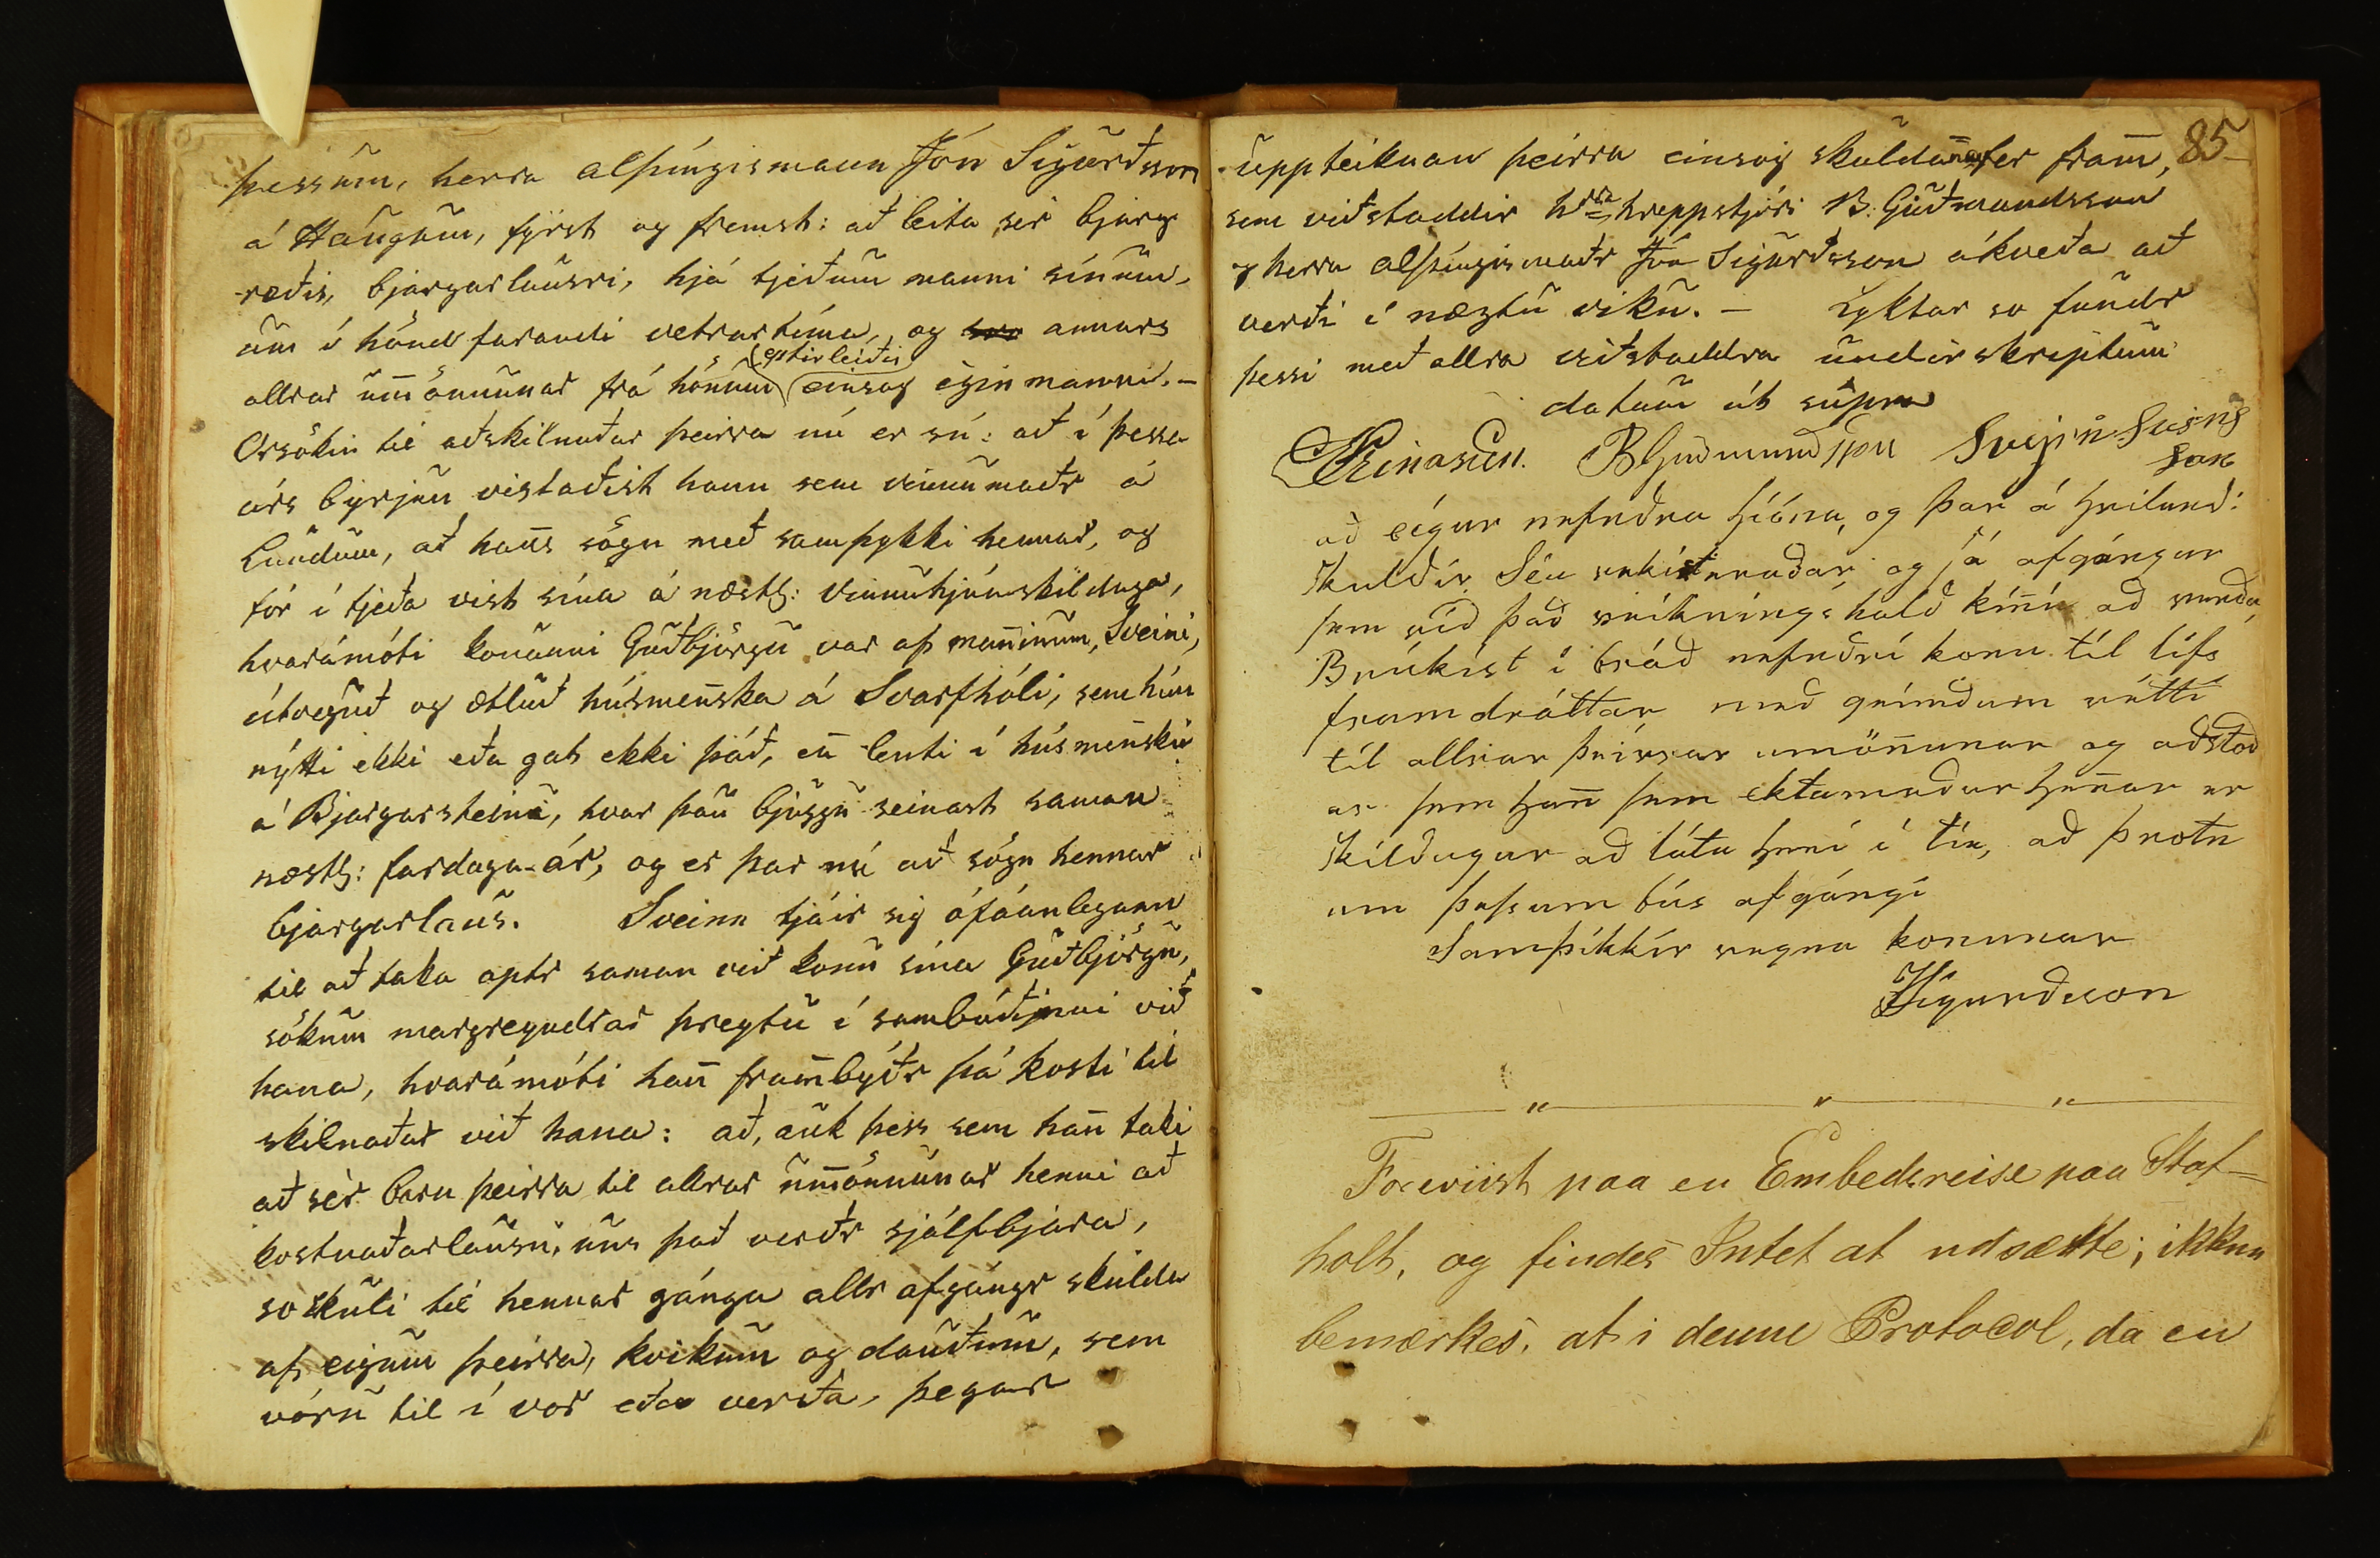 þessum, herra alþíngismann Jón Sigurðsson
á Haugum, fyrst og fremst: að leita sér bjarg
ræðis, bjargarlausri, hjá tjeðum manni sínum,
um í hönd farandi vetrartíma, og annars
eptirleiðis
allrar um̅önnunar frá hönum einsog eginmanni. –
Orsökin til aðskilnaðar þeirra nú er sú: að í þessa
árs byrjun vistaðist hann sem vinnumaðr á
Lundum, að han̅s sögn með samþykki hennar, og
fór í tjeða vist sína á næstl: vinnuhjúaskildaga,
hvarámóti konunni Guðbjörgu var af man̅inum, Sveini,
útveguð og ætluð húsmen̅ska á Svarfhóli, sem hún
nýtti ekki eða gat ekki það, en̅ lenti í húsmen̅sku
á Bjargarsteini, hvar þau bjuggu seinast saman
næstl: fardaga-ár, og er þar nú að sögn hennar
bjargarlaus. Sveinn tjáir sig ófáanlegann
til að taka aptr saman við konu sína Guðbjörgu,
sökum margreyndrar þreytu í sambúðinni við
hana, hvarámóti han̅ fram̅býðr þá kosti til
skilnaðar við hana: að, auk þess sem han̅ taki
að sér barn þeirra til allrar um̅önnunar henni að
kostnaðarlausu, uns það verðr sjálfbjara,
so skuli til hennar gánga allr afgángr skulda
af eigum þeirra, kvikum og dauðum, sem
vóru til í vor eða verða, þegar
85
uppteiknan þeirra einsog skuldan̅a fer fram̅,
sem viðstaddir hrra hreppstjóri B. Guðmundsson
og herra alþíngismaðr Jón Sigurðsson ákveða að
verði í næztu viku. – Lyktar so fundr
þessi með allra viðstaddra undirskriptum
datum út supra
Einarsen. BGuðmundsson Svein Sveins
son
að eigur nefndra hióna, og þar á hvilandi
skuldir séu rekistreradar og sá afgángur
sem við það reikníngshald kin̅i að verða,
Brúkist í bráð nefndri konu til lífs
framdráttar með greindum rétti
til allrar þeirrar umön̅unar og aðstoð
ar sem han̅ sem ektamadur hen̅ar er
skildugur að láta hen̅i í tíe, að þrotn
um þessum bús afgángi
Samþikkir vegna konunar
JSigurdsson
Foreviist paa en Embedsreise paa Staf-
holt, og findes Intet at udsætte; ikkun
bemærkes, at i denne Protocol, da en